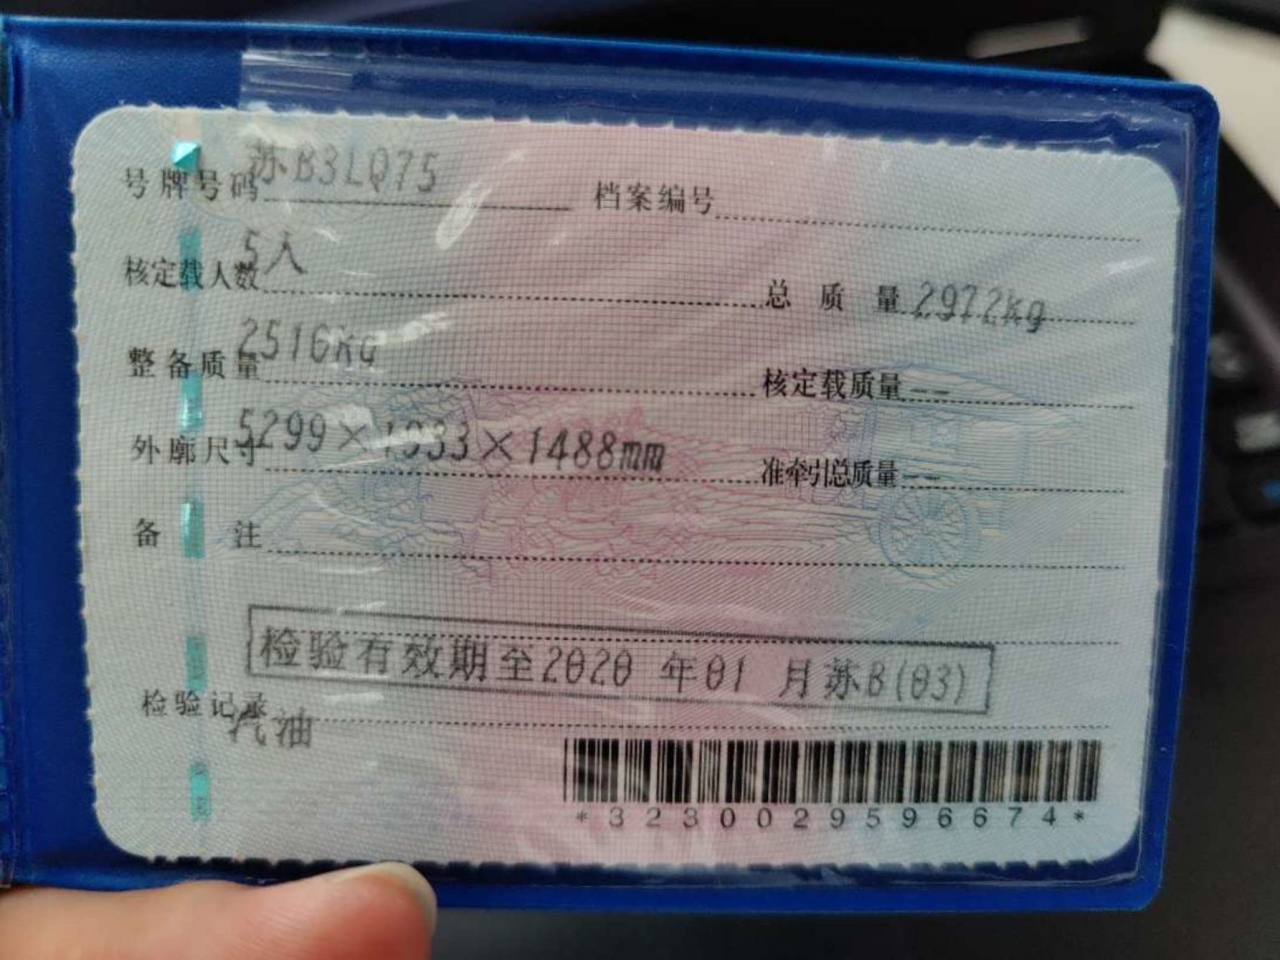 号牌号码 苏B3LQ75 档案编号
核定载人数 5人 总质量 2972kg
整备质量 2516kg 核定载质量 --
外廓尺寸 5299×1933×1488mm 准牵引总质量 --
备注
检验有效期至2020年01月苏B(03)
检验记录
汽油
*3230029596674*